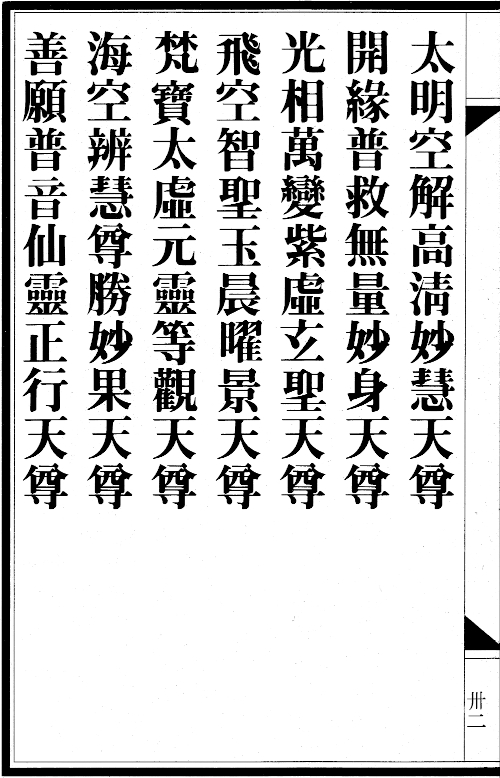 太明空解高清妙慧天尊
開緣普救無量妙身天尊
光相萬變紫虛玄聖天尊
飛空智聖玉晨曜景天尊
梵寶太虛元靈等觀天尊
海空辨慧尊勝妙果天尊
善願普音仙靈正行天尊
卅二